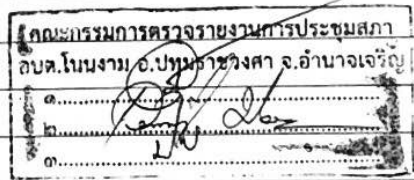 คณะกรรมการตรวจรายงานการประชุมสภา
อบต.โนนงาม อ.ปทุมราชวงศา จ.อำนาจเจริญ
๑.
๒.
๓.